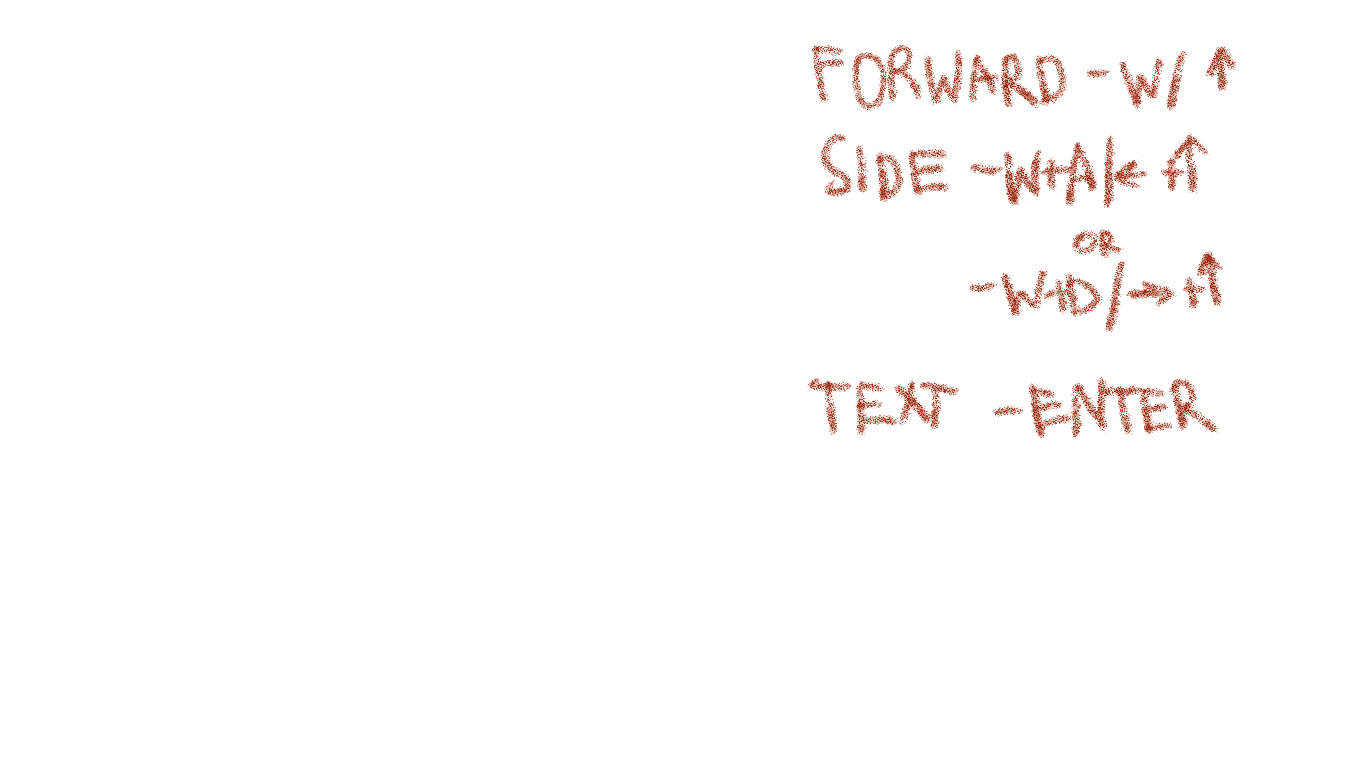 FORWARD - W/ ↑
SIDE - W+A/← +↑
OR
- W+D/→ +↑
TEXT - ENTER